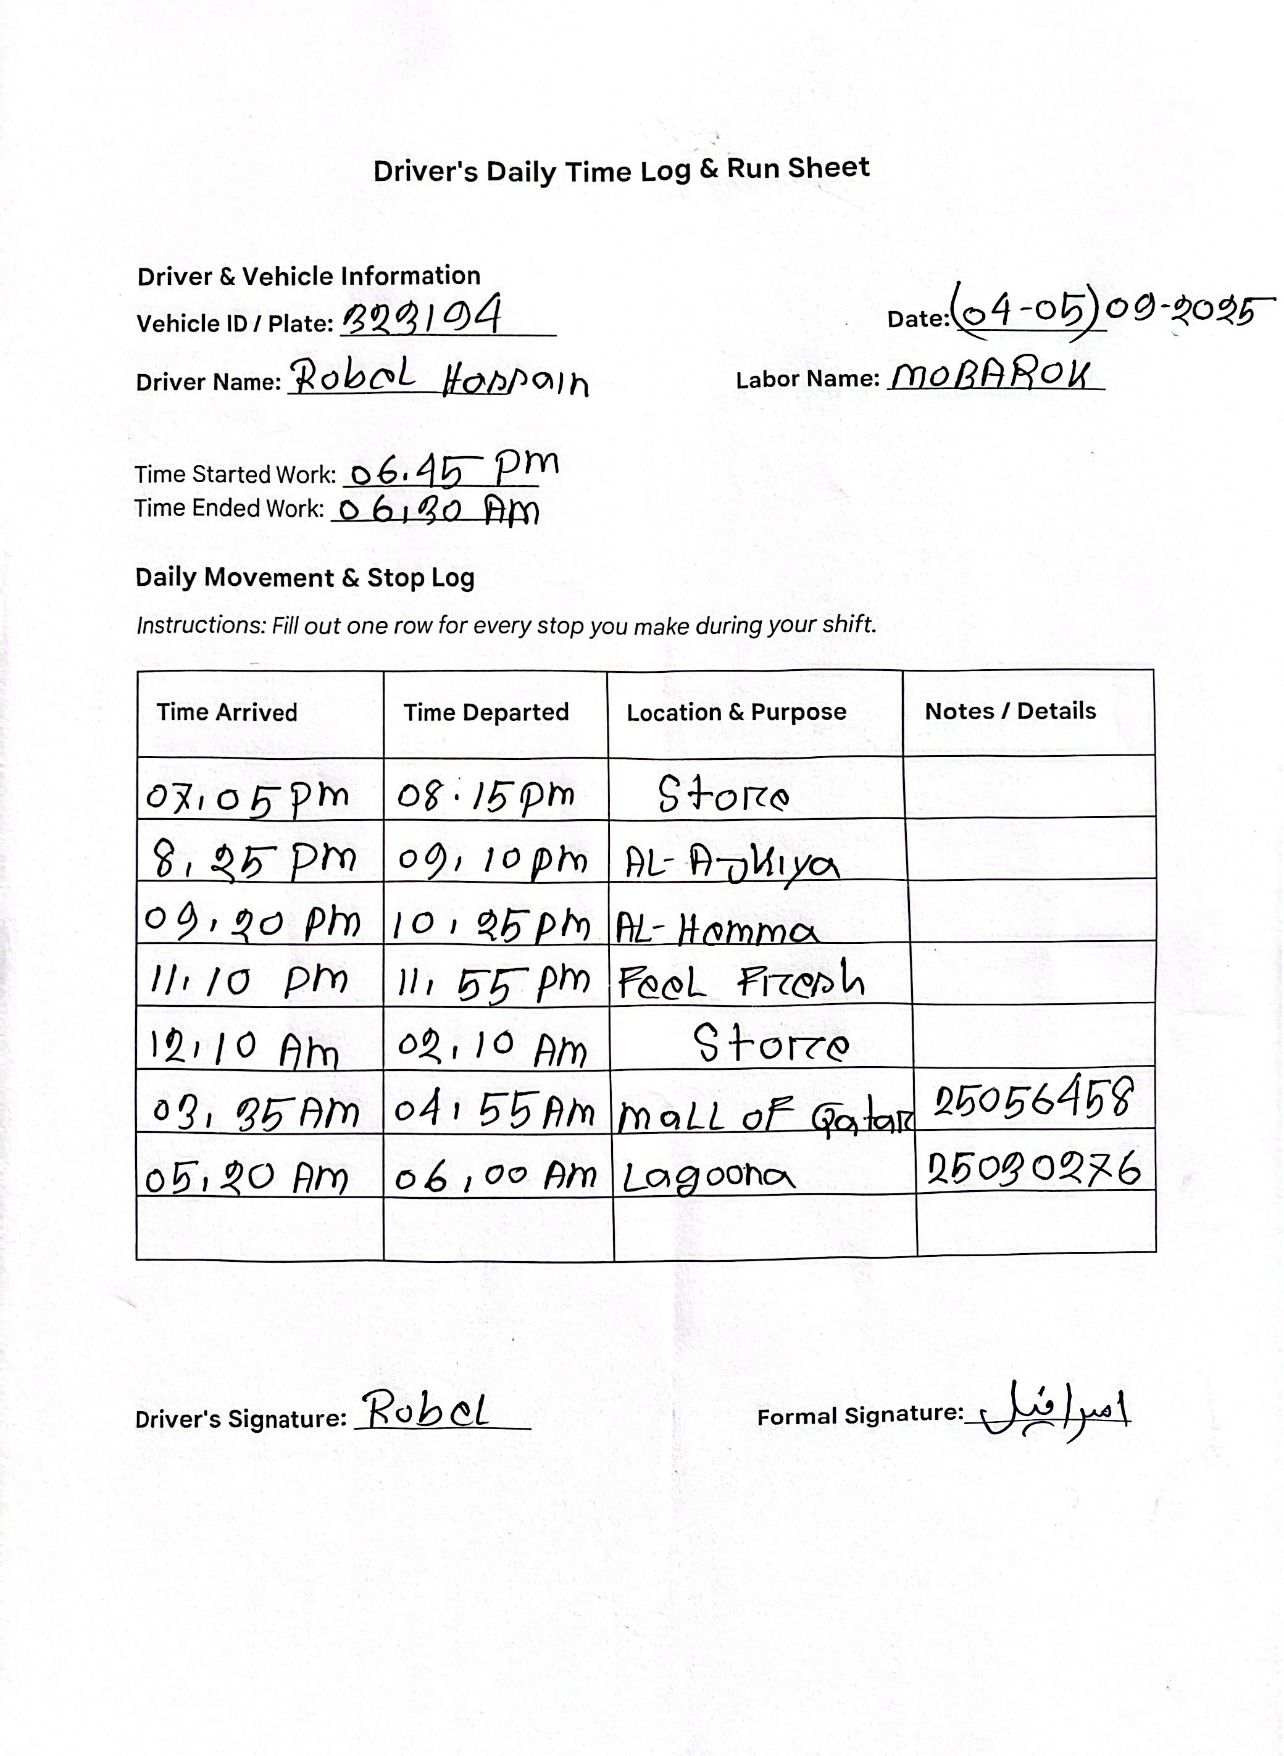 Driver's Daily Time Log & Run Sheet
Driver & Vehicle Information
Vehicle ID / Plate: 323194 Date: (04-05)09-2025
Driver Name: Robel Hossain Labor Name: MOBAROK
Time Started Work: 06.45 PM
Time Ended Work: 06,30 AM
Daily Movement & Stop Log
Instructions: Fill out one row for every stop you make during your shift.
Time Arrived Time Departed Location & Purpose Notes / Details
07,05 pm 08.15 pm Store
8,25 pm 09,10 pm AL-
09,20 pm 10,25 pm AL-Homma
11,10 pm 11,55 pm Feel Fresh
12,10 Am 02,10 Am Store
03,35 AM 04,55 AM mall of Qatar 25056458
05,20 AM 06,00 AM Lagoona 25030276
Driver's Signature: Robel Formal Signature: